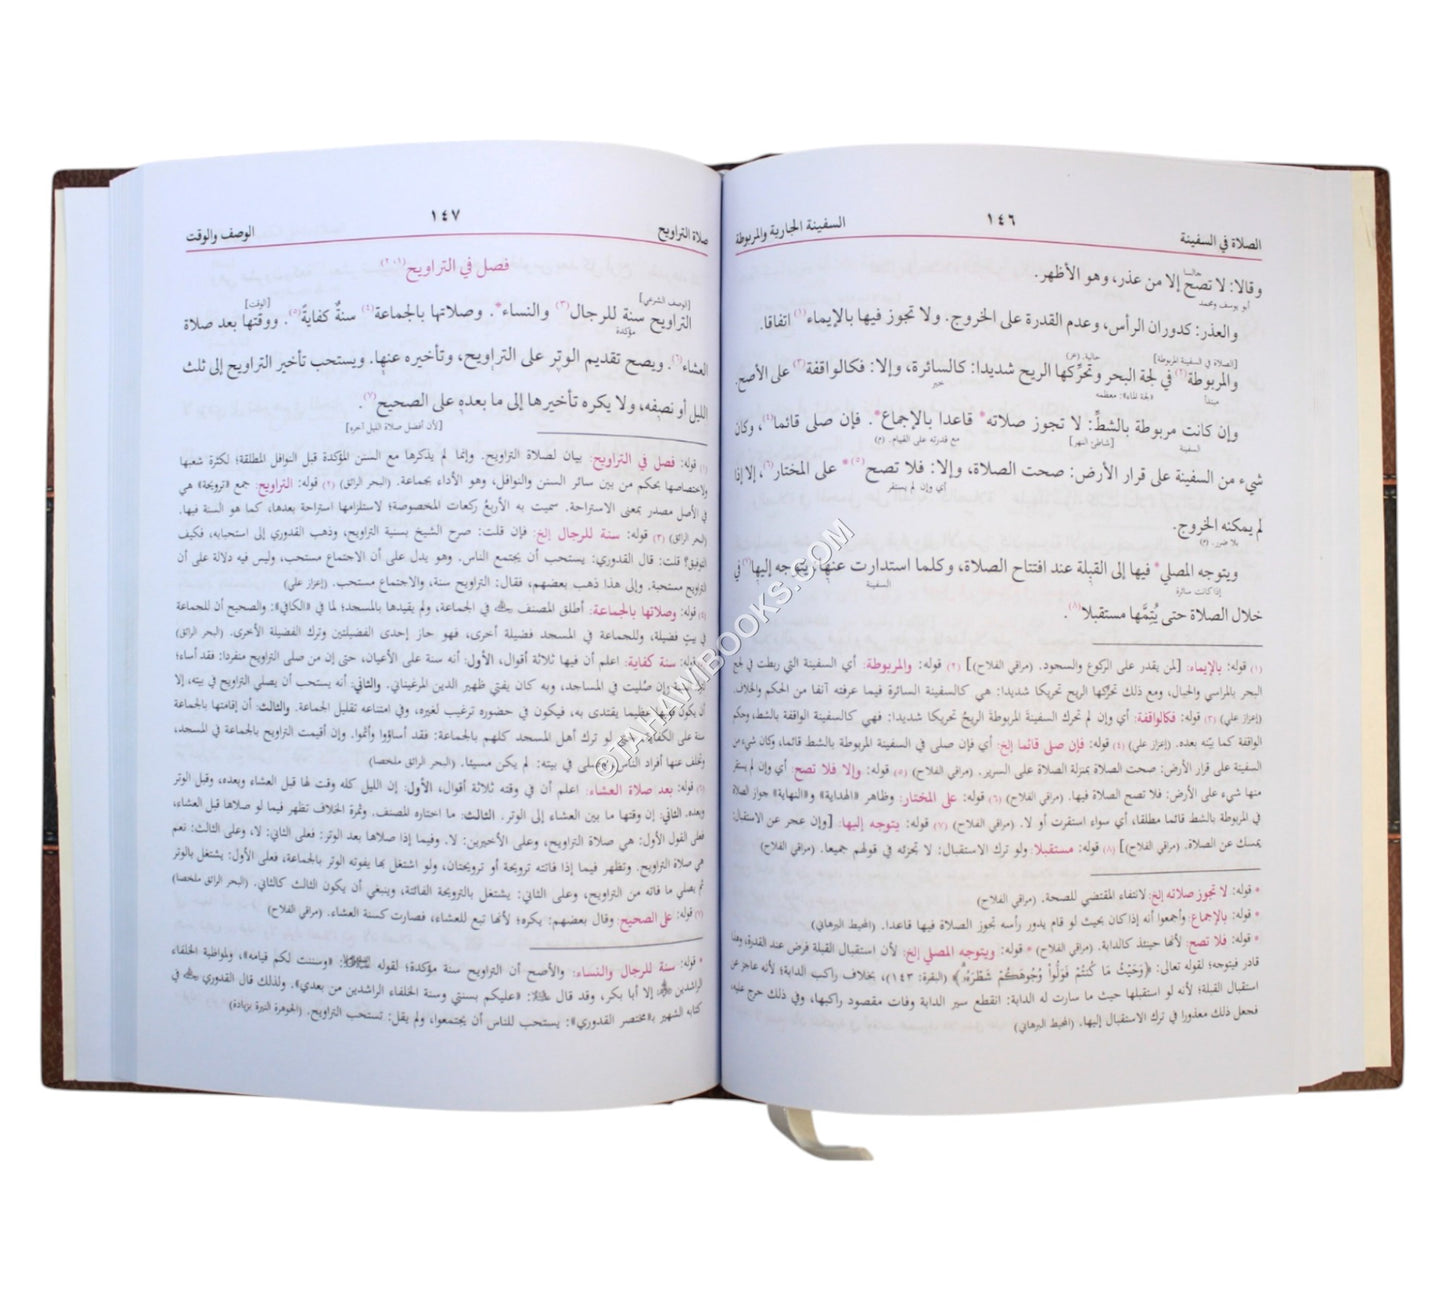 الصلاة في السفينة
١٤٦
السفينة الجارية والمربوطة
وقالا: لا تصح إلا من عذر، وهو الأظهر.
جالسا
أبو يوسف ومحمد
والعذر: كدوران الرأس، وعدم القدرة على الخروج. ولا تجوز فيها بالإيماء(١) اتفاقا.
[الصلاة في السفينة المربوطة]
والمربوطة(٢) في لجة البحر وتحرِّكها الريح شديدا: كالسائرة، وإلا: فكالواقفة(٣) على الأصح.
مبتدأ
لجة الماء: معظمه
خبر
وإن كانت مربوطة بالشطِّ: لا تجوز صلاته* قاعدا بالإجماع*. فإن صلى قائما(٤)، وكان
السفينة
[شاطئ النهر]
مع قدرته على القيام. (م)
شيء من السفينة على قرار الأرض: صحت الصلاة، وإلا: فلا تصح(٥)* على المختار(٦)، إلا إذا
أي وإن لم يستقر
لم يمكنه الخروج.
بلا ضرر. (م)
ويتوجه المصلي* فيها إلى القِبلة عند افتتاح الصلاة، وكلما استدارت عنها، يتوجه إليها(٧) في
إذا كانت سائرة
السفينة
خلال الصلاة حتى يُتِمَّها مستقبلا(٨).
(١) قوله: بالإيماء: [لمن يقدر على الركوع والسجود. (مراقي الفلاح)] (٢) قوله: والمربوطة: أي السفينة التي ربطت في لجج
البحر بالمراسي والحبال، ومع ذلك تحرِّكها الريح تحريكا شديدا: هي كالسفينة السائرة فيما عرفته آنفا من الحكم والخلاف.
(إعزاز علي) (٣) قوله: فكالواقفة: أي وإن لم تحرك السفينةَ المربوطةَ الريحُ تحريكا شديدا: فهي كالسفينة الواقفة بالشط، وحكم
الواقفة كما بيّنه بعده. (إعزاز علي) (٤) قوله: فإن صلى قائما إلخ: أي فإن صلى في السفينة المربوطة بالشط قائما، وكان شيء من
السفينة على قرار الأرض: صحت الصلاة بمنزلة الصلاة على السرير. (مراقي الفلاح) (٥) قوله: وإلا فلا تصح: أي وإن لم يستقر
منها شيء على الأرض: فلا تصح الصلاة فيها. (مراقي الفلاح) (٦) قوله: على المختار: وظاهر «الهداية» و«النهاية» جواز الصلاة
في المربوطة بالشط قائما مطلقا، أي سواء استقرت أو لا. (مراقي الفلاح) (٧) قوله: يتوجه إليها: [وإن عجز عن الاستقبال:
يمسك عن الصلاة. (مراقي الفلاح)] (٨) قوله: مستقبلا: ولو ترك الاستقبال: لا تجزئه في قولهم جميعا. (مراقي الفلاح)
* قوله: لا تجوز صلاته إلخ: لانتفاء المقتضي للصحة. (مراقي الفلاح)
* قوله: بالإجماع: وأجمعوا أنه إذا كان بحيث لو قام يدور رأسه تجوز الصلاة فيها قاعدا. (المحيط البرهاني)
* قوله: فلا تصح: لأنها حينئذ كالدابة. (مراقي الفلاح) * قوله: ويتوجه المصلي إلخ: لأن استقبال القبلة فرض عند القدرة، وهذا
قادر فيتوجه؛ لقوله تعالى: ﴿وَحَيْثُ مَا كُنتُمْ فَوَلُّواْ وُجُوهَكُمْ شَطْرَهُۥ﴾ (البقرة: ١٤٣)، بخلاف راكب الدابة؛ لأنه عاجز عن
استقبال القبلة؛ لأنه لو استقبلها حيث ما سارت له الدابة: انقطع سير الدابة وفات مقصود راكبها، وفي ذلك حرج عليه،
فجعل ذلك معذورا في ترك الاستقبال إليها. (المحيط البرهاني)
صلاة التراويح
١٤٧
الوصف والوقت
فصل في التراويح(١، ٢)
[الوصف الشرعي]
[الوقت]
التراويح سنة للرجال(٣) والنساء*. وصلاتها بالجماعة(٤) سنةُ كفايةٍ(٥). ووقتها بعد صلاة
مؤكدة
العشاء(٦). ويصح تقديم الوتر على التراويح، وتأخيره عنها. ويستحب تأخير التراويح إلى ثلث
الليل أو نصفه، ولا يكره تأخيرها إلى ما بعده على الصحيح(٧).
[لأن أفضل صلاة الليل آخره]
(١) قوله: فصل في التراويح: بيان لصلاة التراويح. وإنما لم يذكرها مع السنن المؤكدة قبل النوافل المطلقة؛ لكثرة شعبها
ولاختصاصها بحكم من بين سائر السنن والنوافل، وهو الأداء بجماعة. (البحر الرائق) (٢) قوله: التراويح: جمع «ترويحة» هي
في الأصل مصدر بمعنى الاستراحة. سميت به الأربعُ ركعات المخصوصة؛ لاستلزامها استراحة بعدها، كما هو السنة فيها.
(البحر الرائق) (٣) قوله: سنة للرجال إلخ: فإن قلت: صرح الشيخ بسنية التراويح، وذهب القدوري إلى استحبابه، فكيف
التوفيق؟ قلت: قال القدوري: يستحب أن يجتمع الناس. وهو يدل على أن الاجتماع مستحب، وليس فيه دلالة على أن
التراويح مستحبة. وإلى هذا ذهب بعضهم، فقال: التراويح سنة، والاجتماع مستحب. (إعزاز علي)
(٤) قوله: وصلاتها بالجماعة: أطلق المصنف في الجماعة، ولم يقيدها بالمسجد؛ لما في «الكافي»: والصحيح أن للجماعة
في بيتٍ فضيلة، وللجماعة في المسجد فضيلة أخرى، فهو حاز إحدى الفضيلتين وترك الفضيلة الأخرى. (البحر الرائق)
قوله: سنة كفاية: اعلم أن فيها ثلاثة أقوال، الأول: أنه سنة على الأعيان، حتى إن من صلى التراويح منفردا: فقد أساء؛
وإن صُليت في المساجد، وبه كان يفتي ظهير الدين المرغيناني. والثاني: أنه يستحب أن يصلي التراويح في بيته، إلا
أن يكون عظيما يقتدى به، فيكون في حضوره ترغيب لغيره، وفي امتناعه تقليل الجماعة. والثالث: أن إقامتها بالجماعة
سنة على الكفاية، لو ترك أهل المسجد كلهم بالجماعة: فقد أساؤوا وأثموا. وإن أقيمت التراويح بالجماعة في المسجد،
وتخلف عنها أفراد الناس في بيته: لم يكن مسيئا. (البحر الرائق ملخصا)
(٦) قوله: بعد صلاة العشاء: اعلم أن في وقته ثلاثة أقوال، الأول: إن الليل كله وقت لها قبل العشاء وبعده، وقبل الوتر
وبعده. الثاني: إن وقتها ما بين العشاء إلى الوتر. الثالث: ما اختاره المصنف. وثمرة الخلاف تظهر فيما لو صلاها قبل العشاء،
فعلى القول الأول: هي صلاة التراويح، وعلى الأخيرين: لا. وفيما إذا صلاها بعد الوتر: فعلى الثاني: لا، وعلى الثالث: نعم
هي صلاة التراويح. وتظهر فيما إذا فاتته ترويحة أو ترويحتان، ولو اشتغل بها يفوته الوتر بالجماعة، فعلى الأول: يشتغل بالوتر
ثم يصلي ما فاته من التراويح، وعلى الثاني: يشتغل بالترويحة الفائتة، وينبغي أن يكون الثالث كالثاني. (البحر الرائق ملخصا)
(٧) قوله: على الصحيح: وقال بعضهم: يكره؛ لأنها تبع للعشاء، فصارت كسنة العشاء. (مراقي الفلاح)
* قوله: سنة للرجال والنساء: والأصح أن التراويح سنة مؤكدة؛ لقوله: «وسننت لكم قيامه»، ولمواظبة الخلفاء
الراشدين إلا أبا بكر، وقد قال: «عليكم بسنتي وسنة الخلفاء الراشدين من بعدي». ولذلك قال القدوري في
كتابه الشهير بـ«مختصر القدوري»: يستحب للناس أن يجتمعوا، ولم يقل: تستحب التراويح. (الجوهرة النيرة بزيادة)
©TAHAWIBOOKS.COM